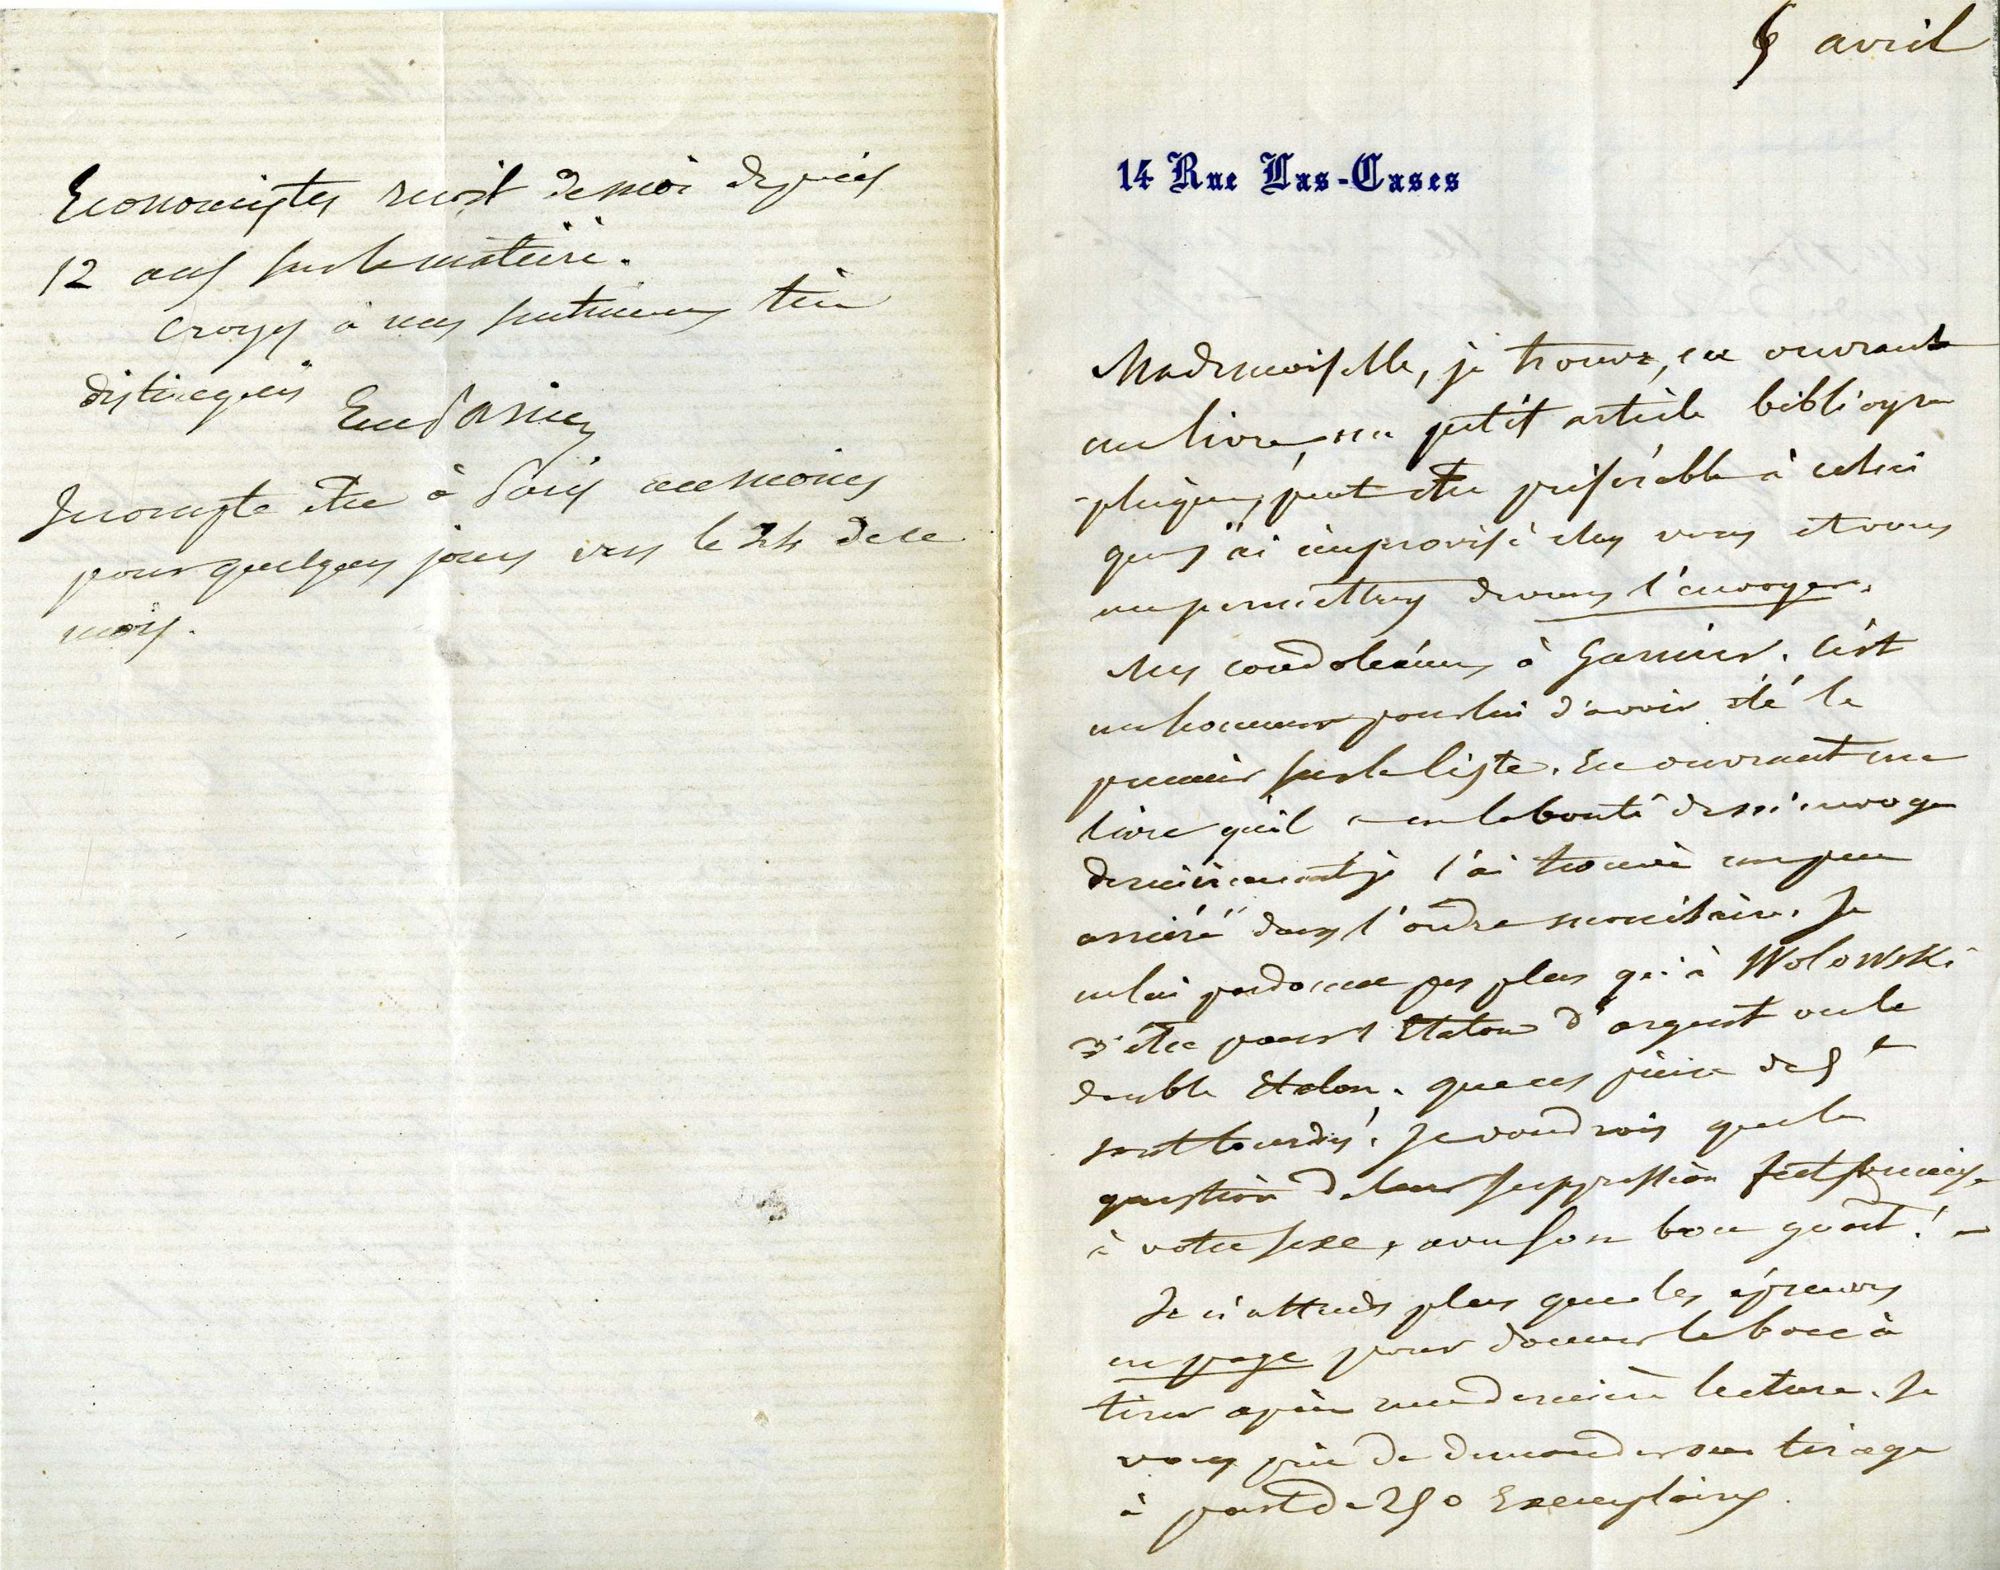 6 avril
14 Rue Las-Cases
Mademoiselle, je trouve, en ouvrant
un livre, un petit article bibliogra
-phique, peut etre préférable à celui
que j'ai improvisé chez vous et vous
me permettrez de vous l'envoyer.
Mes condoléances à Garnier. C'est
un honneur pour lui d'avoir été le
premier sur la liste. En ouvrant un
livre qu'il a eu la bonté de m'envoyer
dernièrement je l'ai trouvé un peu
arriéré dans l'ordre monétaire. Je
ne lui pardonne pas plus qu'à Wolowski
d'être pour l'Etalon d'argent ou le
double Etalon. que ces pièces de 5 f
sont lourdes! Je voudrais que la
question de leur suppression fut soumise
à votre sexe, au son bon goût! –
Je n'attends plus que les épreuves
en page pour donner le bon à
tirer après une dernière lecture. Je
vous prie de demander un tirage
à part de 250 Exemplaires.
Economistes reçoit de moi depuis
12 ans sur la matière.
Croyez à mes sentiments très
distingués
E de Parieu
Je compte être à Paris au moins
pour quelques jours vers le 24 de ce
mois.